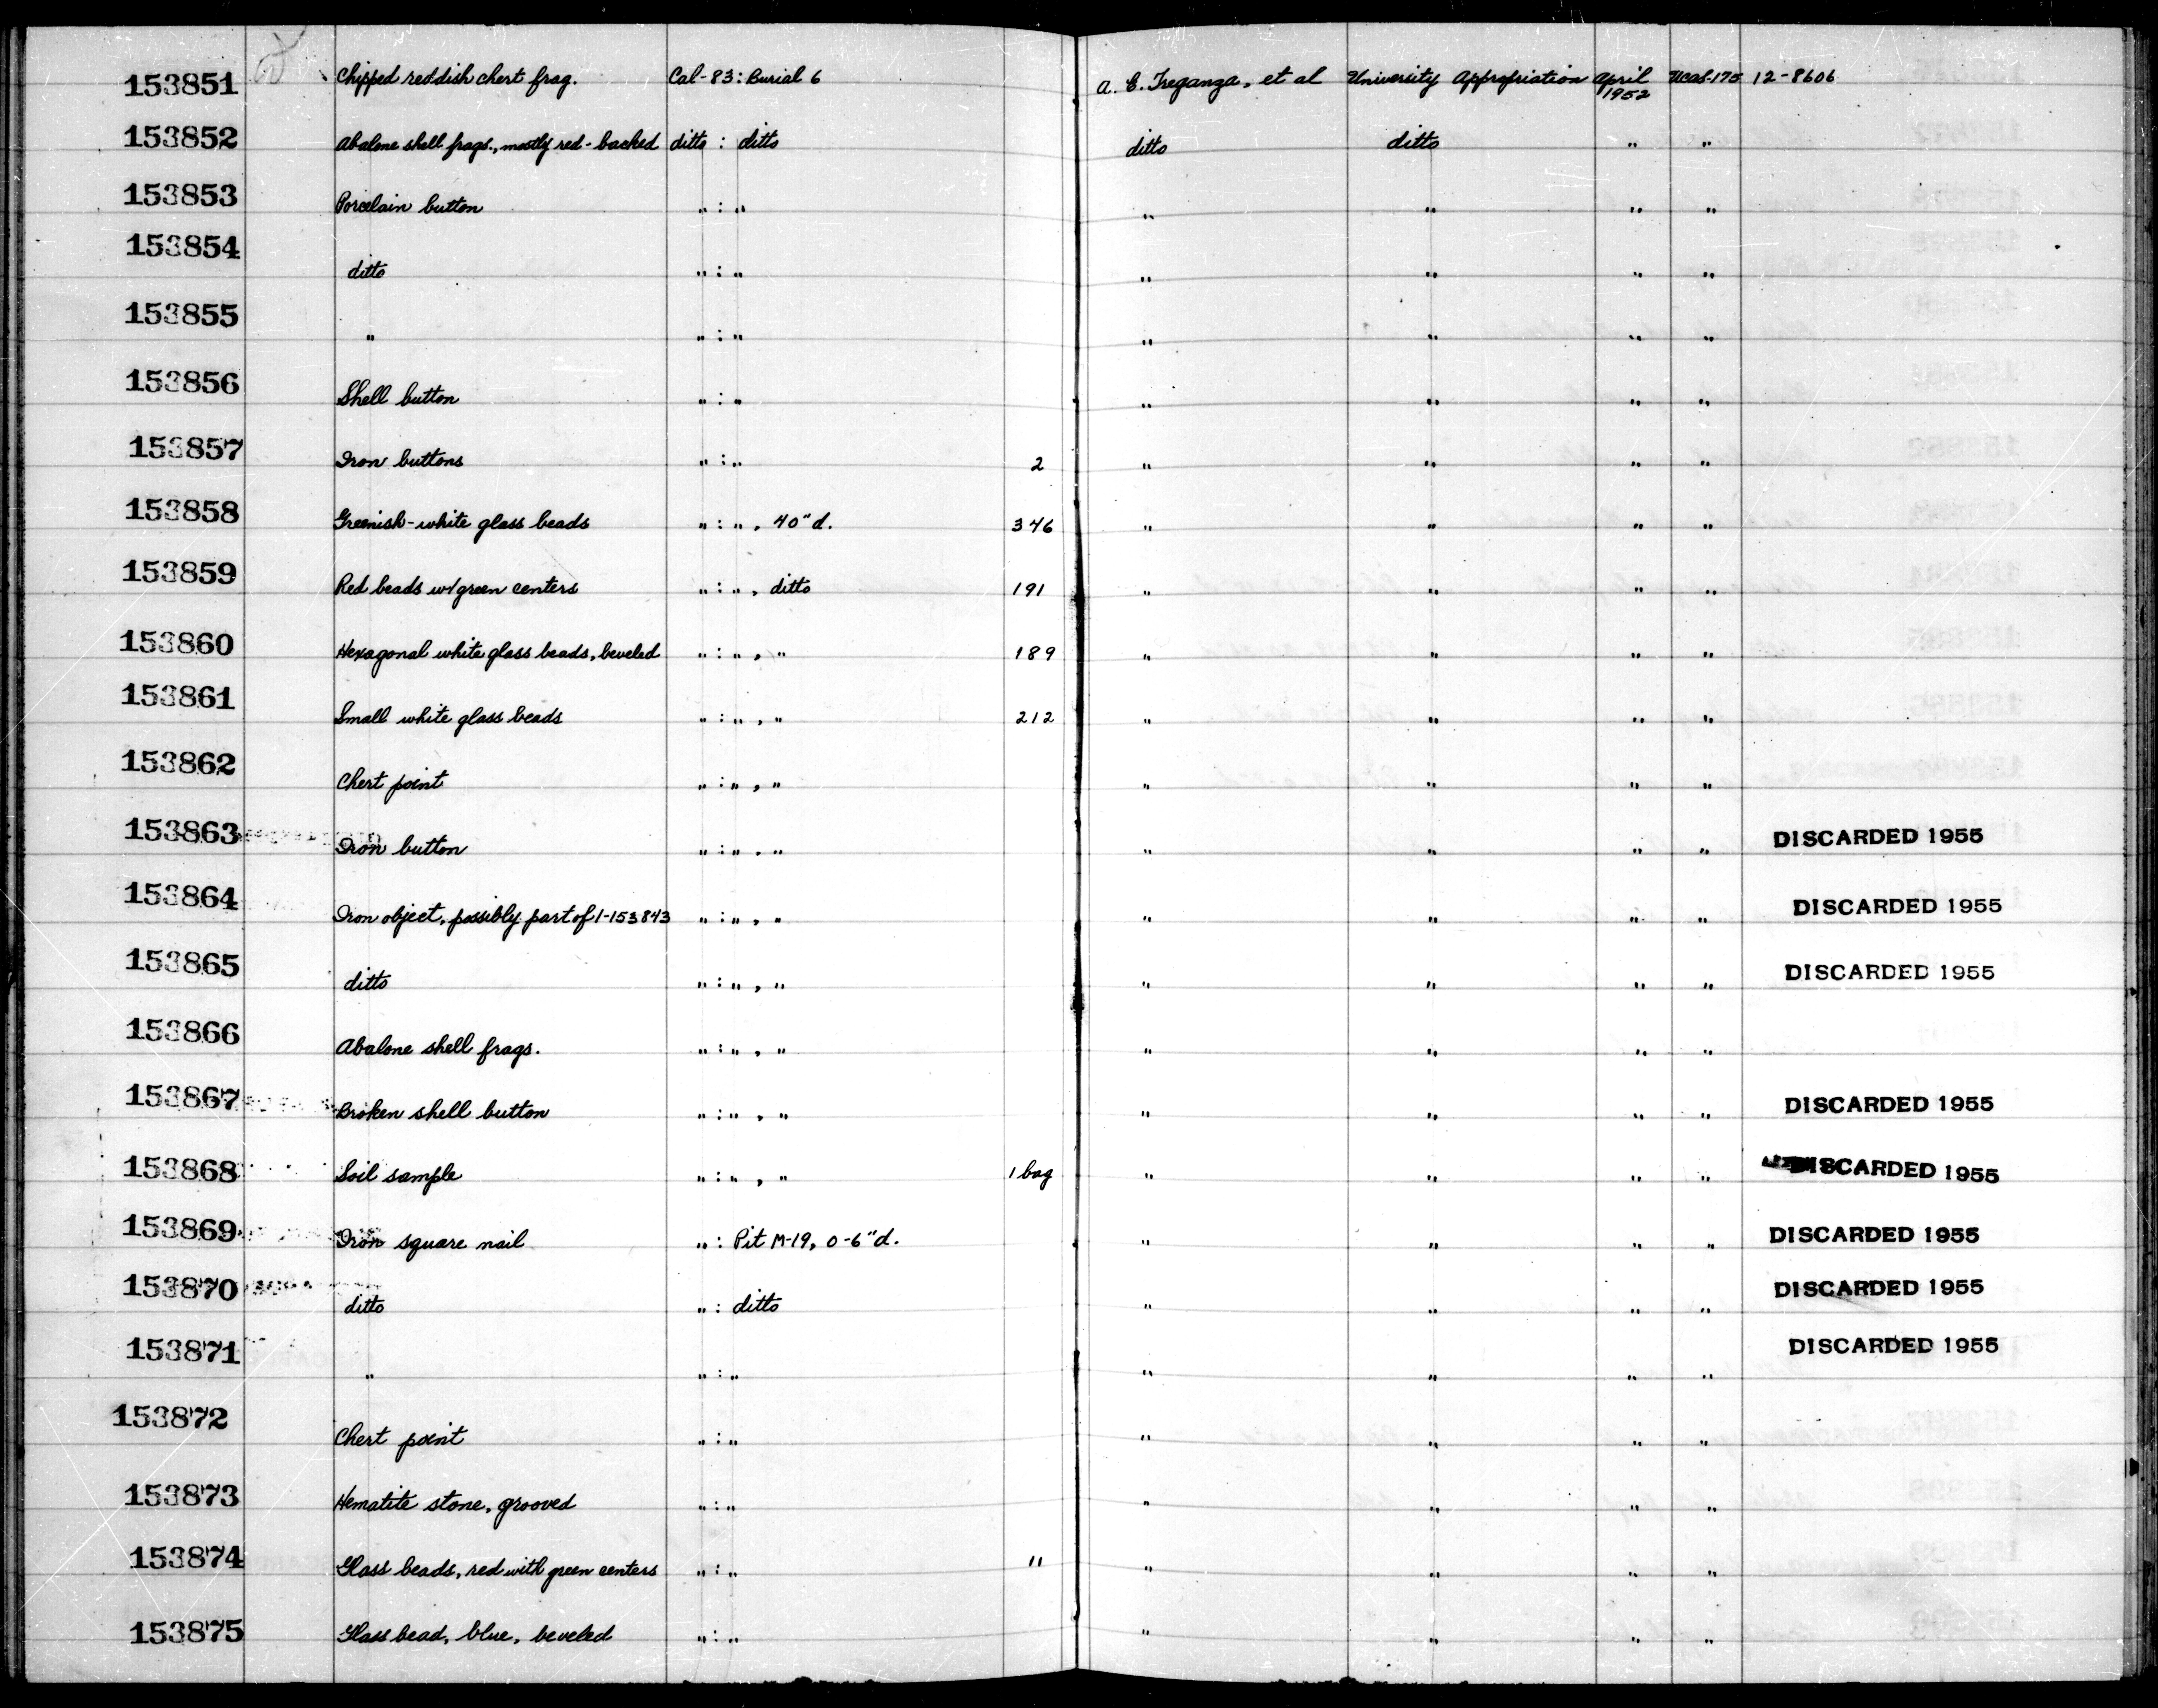 153851 Chipped reddish chert frag. Cal-83: Burial 6 A. E. Treganza, et al University Appropriation April 1952 UCAS-175 12-8606
153852 Abalone shell frags., mostly red-backed ditto : ditto ditto ditto " "
153853 Porcelain button " : " " " " "
153854 ditto " : " " " " "
153855 " " : " " " " "
153856 Shell button " : " " " " "
153857 Iron buttons " : " 2 " " " "
153858 Greenish-white glass beads " : ", 40"d. 346 " " " "
153859 Red beads w/green centers " : ", ditto 191 " " " "
153860 Hexagonal white glass beads, beveled " : ", " 189 " " " "
153861 Small white glass beads " : ", " 212 " " " "
153862 Chert point " : ", " " " " "
153863 Iron button " : ", " " " " " DISCARDED 1955
153864 Iron object, possibly part of 1-153843 " : ", " " " " " DISCARDED 1955
153865 ditto " : ", " " " " " DISCARDED 1955
153866 Abalone shell frags. " : ", " " " " "
153867 Broken shell button " : ", " " " " " DISCARDED 1955
153868 Soil sample " : ", " 1 bag " " " " DISCARDED 1955
153869 Iron square nail " : Pit M-19, 0-6"d. " " " " DISCARDED 1955
153870 ditto " : ditto " " " " DISCARDED 1955
153871 " " : " " " " " DISCARDED 1955
153872 Chert point " : " " " " "
153873 Hematite stone, grooved " : " " " " "
153874 Glass beads, red with green centers " : " 11 " " " "
153875 Glass bead, blue, beveled " : " " " " "